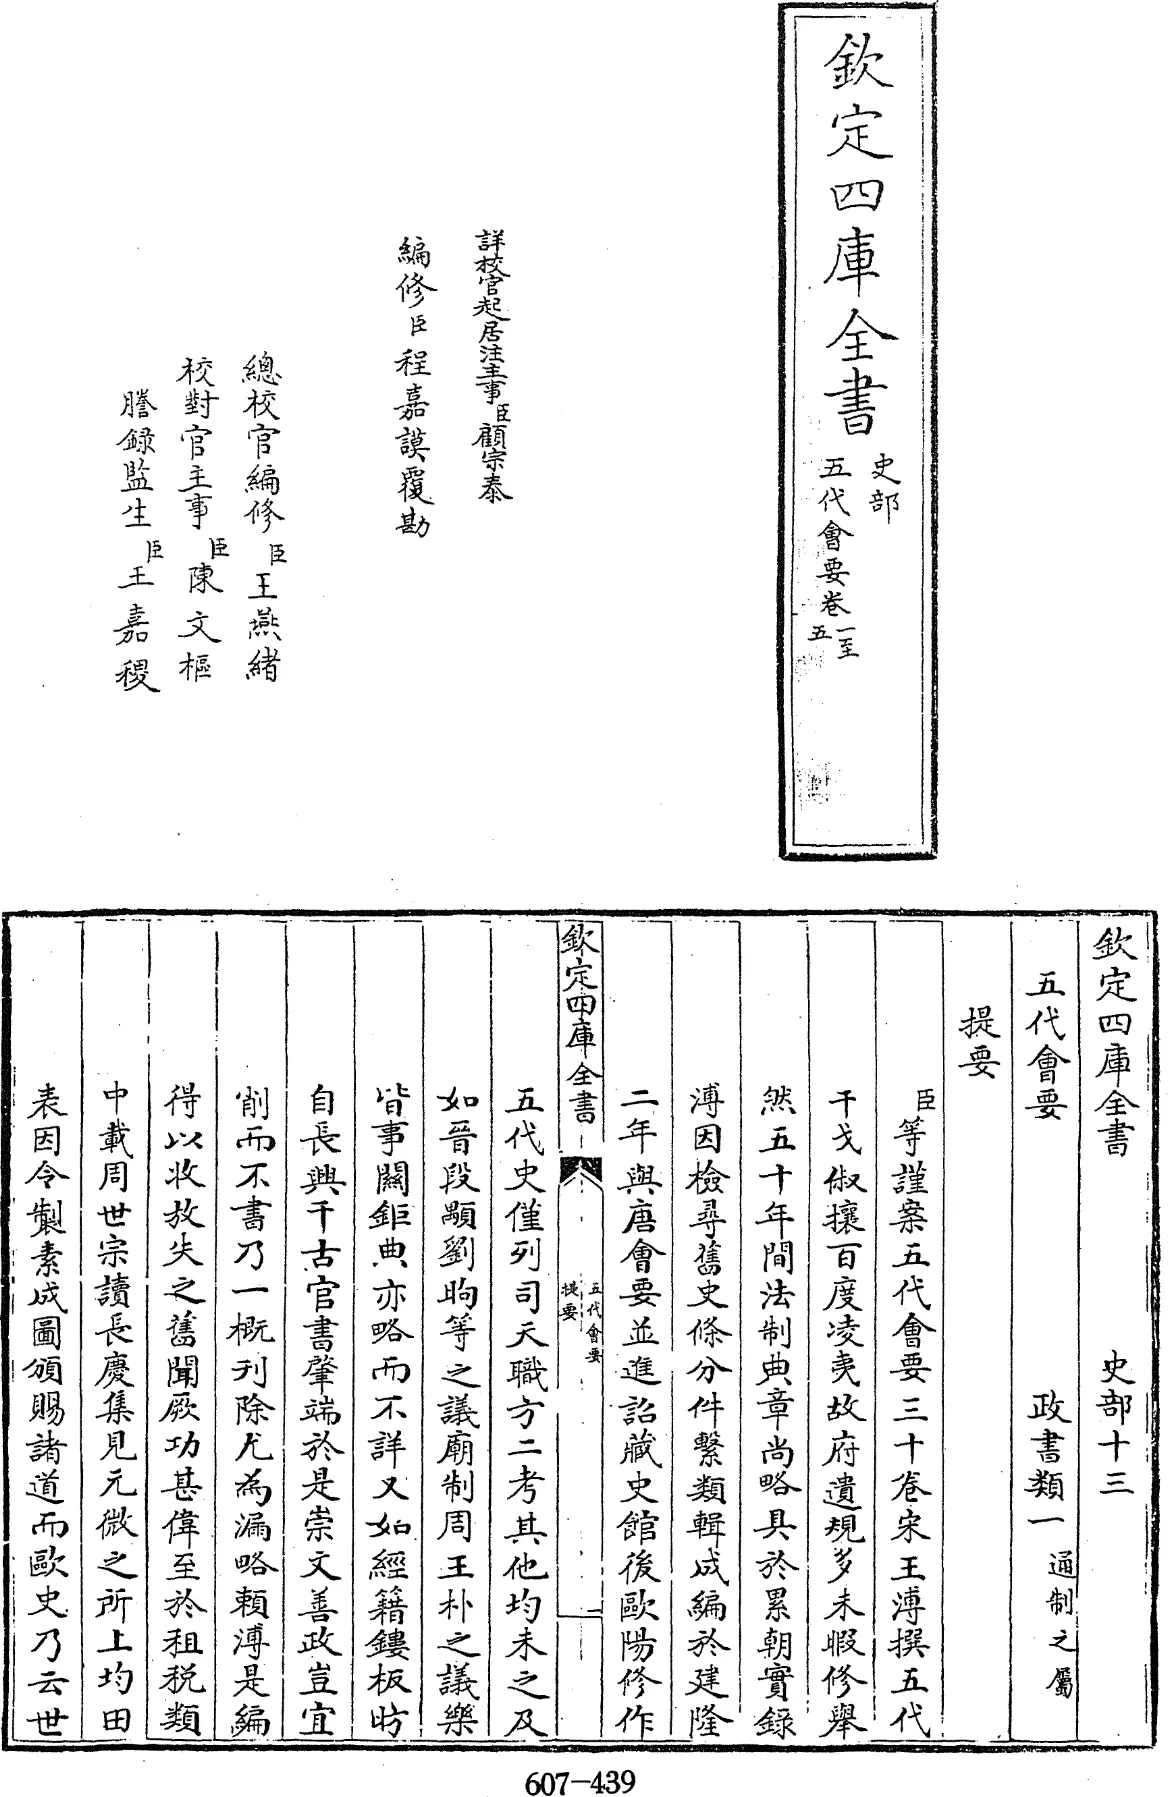 欽定四庫全書
史部
五代會要卷一至五
詳校官起居注主事臣顧宗泰
編修臣程嘉謨覆勘
總校官編修臣王燕緒
校對官主事臣陳文樞
謄録監生臣王嘉稷
欽定四庫全書 史部十三
五代會要 政書類一 通制之屬
提要
臣等謹案五代會要三十卷宋王溥撰五代
干戈俶擾百度凌夷故府遺規多未暇修舉
然五十年間法制典章尚略具於累朝實録
溥因檢尋舊史條分件繫類輯成編於建隆
二年與唐會要並進詔藏史館後歐陽修作
欽定四庫全書
五代會要
提要
一
五代史僅列司天職方二考其他均未之及
如晉段顒劉昫等之議廟制周王朴之議樂
皆事關鉅典亦略而不詳又如經籍鏤板昉
自長興千古官書肇端於是崇文善政豈宜
削而不書乃一概刋除尤為漏略賴溥是編
得以收放失之舊聞厥功甚偉至於租税類
中載周世宗讀長慶集見元微之所上均田
表因令製素成圖頒賜諸道而歐史乃云世
607-439